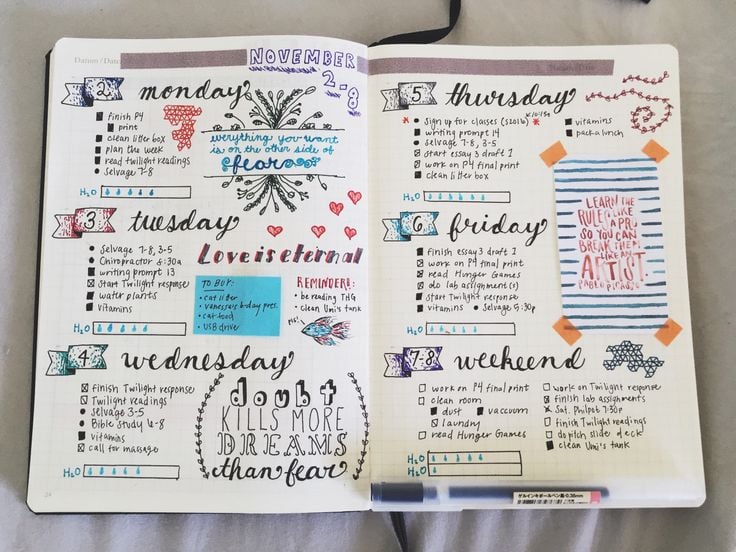 Datum / Date
NOVEMBER
2-8
2 monday
finish P4
print
clean litter box
plan the week
read twilight readings
selvage 7-8
H2O
everything you want
is on the other side of
fear
3 tuesday
Selvage 7-8, 3-5
Chiropractor 8:30a
writing prompt 13
Start Twilight response
water plants
vitamins
H2O
Love is eternal
TO BUY:
cat litter
vanessa's b-day pres.
cat food
USB drive
REMINDER!:
be reading THG
clean Umi's tank
4 wednesday
finish Twilight response
Twilight readings
selvage 3-5
Bible Study 6-8
vitamins
call for massage
H2O
doubt
KILLS MORE
DREAMS
than fear
24
Datum / Date
5 thursday
sign up for classes (S2016)
writing prompt 14
selvage 7-8, 3-5
start essay 3 draft 1
work on P4 final print
clean litter box
vitamins
pack a lunch
H2O
6 friday
finish essay 3 draft 1
work on P4 final print
read Hunger Games
do lab assignment(s)
start Twilight response
vitamins
Selvage 5:30p
H2O
LEARN THE
RULES LIKE
A PRO
SO YOU CAN
BREAK THEM
LIKE AN
ARTIST.
PABLO PICASSO
7-8 weekeend
work on P4 final print
clean room
dust
vaccum
laundry
read Hunger Games
work on Twilight response
finish lab assignments
Sat. Philpot 7:30p
finish Twilight readings
do pitch slide deck
clean Umi's tank
H2O
H2O
ゲルインキボールペン 0.38mm